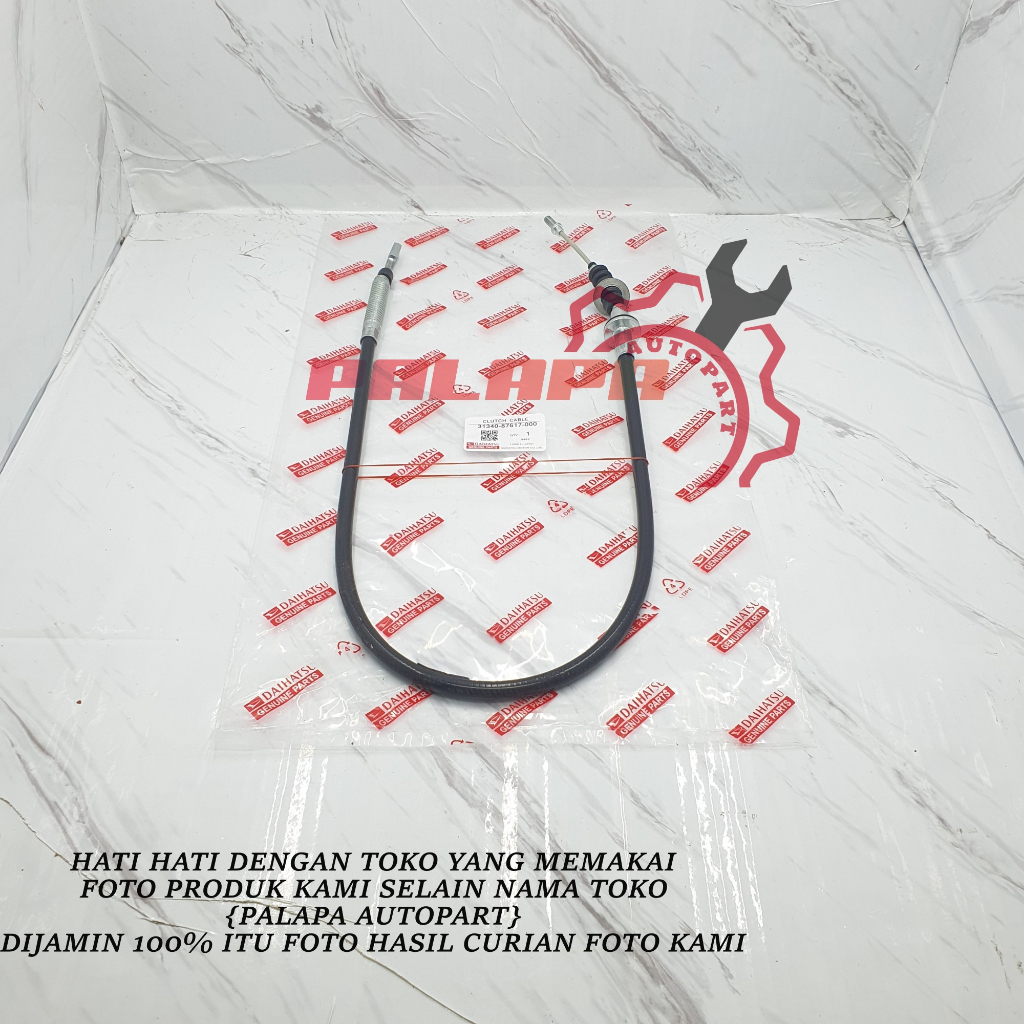 PALAPA
AUTOPART
CLUTCH CABLE
31340-87617-000
QTY 1
DAIHATSU
GENUINE PARTS
LDPE
HATI HATI DENGAN TOKO YANG MEMAKAI
FOTO PRODUK KAMI SELAIN NAMA TOKO
{PALAPA AUTOPART}
DIJAMIN 100% ITU FOTO HASIL CURIAN FOTO KAMI